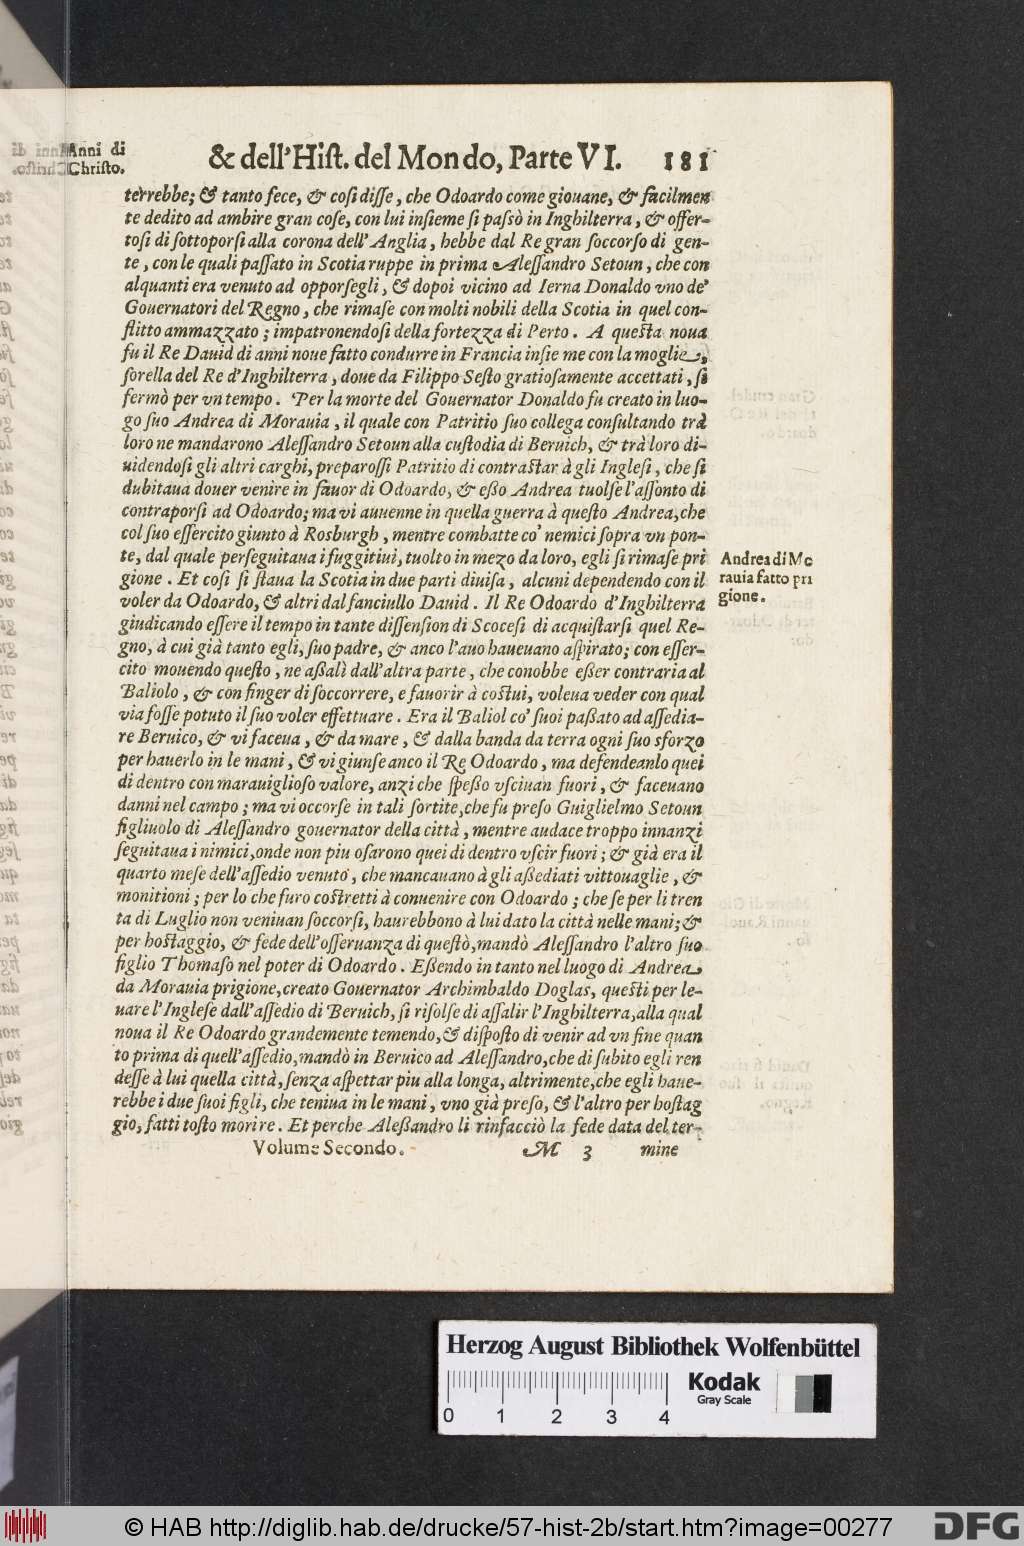 Anni di
Christo.
& dell'Hiſt. del Mondo, Parte VI. 181
terrebbe; & tanto fece, & coſi diſſe, che Odoardo come giouane, & facilmen
te dedito ad ambire gran coſe, con lui inſieme ſi paſsò in Inghilterra, & offer-
toſi di ſottoporſi alla corona dell'Anglia, hebbe dal Re gran ſoccorſo di gen-
te, con le quali paſſato in Scotia ruppe in prima Aleſſandro Setoun, che con
alquanti era venuto ad opporſegli, & dopoi vicino ad Ierna Donaldo vno de'
Gouernatori del Regno, che rimaſe con molti nobili della Scotia in quel con-
flitto ammazzato; impatronendoſi della fortezza di Perto. A queſta noua
fu il Re Dauid di anni noue fatto condurre in Francia inſie me con la moglie,
ſorella del Re d'Inghilterra, doue da Filippo Seſto gratioſamente accettati, ſi
fermò per vn tempo. Per la morte del Gouernator Donaldo fu creato in luo-
go ſuo Andrea di Morauia, il quale con Patritio ſuo collega conſultando trà
loro ne mandarono Aleſſandro Setoun alla cuſtodia di Beruich, & trà loro di-
uidendoſi gli altri carghi, preparoſſi Patritio di contraſtar à gli Ingleſi, che ſi
dubitaua douer venire in fauor di Odoardo, & eßo Andrea tuolſe l'aſſonto di
contraporſi ad Odoardo; ma vi auuenne in quella guerra à queſto Andrea, che
col ſuo eſſercito giunto à Rosburgh, mentre combatte co' nemici ſopra vn pon-
te, dal quale perſeguitaua i fuggitiui, tuolto in mezo da loro, egli ſi rimaſe pri
gione. Et coſi ſi ſtaua la Scotia in due parti diuiſa, alcuni dependendo con il
voler da Odoardo, & altri dal fanciullo Dauid. Il Re Odoardo d'Inghilterra
giudicando eſſere il tempo in tante diſſenſion di Scoceſi di acquiſtarſi quel Re-
gno, à cui già tanto egli, ſuo padre, & anco l'auo haueuano aſpirato; con eſſer-
cito mouendo queſto, ne aßalì dall'altra parte, che conobbe eßer contraria al
Baliolo, & con finger di ſoccorrere, e fauorir à coſtui, voleua veder con qual
via foſſe potuto il ſuo voler effettuare. Era il Baliol co' ſuoi paßato ad aſſedia-
re Beruico, & vi faceua, & da mare, & dalla banda da terra ogni ſuo sforzo
per hauerlo in le mani, & vi giunſe anco il Re Odoardo, ma defendeanlo quei
di dentro con marauiglioſo valore, anzi che ſpeßo vſciuan fuori, & faceuano
danni nel campo; ma vi occorſe in tali ſortite, che fu preſo Guiglielmo Setoun
figliuolo di Aleſſandro gouernator della città, mentre audace troppo innanzi
ſeguitaua i nimici, onde non piu oſarono quei di dentro vſcir fuori; & già era il
quarto meſe dell'aſſedio venuto, che mancauano à gli aßediati vittouaglie, &
monitioni; per lo che furo coſtretti à conuenire con Odoardo; che ſe per li tren
ta di Luglio non veniuan ſoccorſi, haurebbono à lui dato la città nelle mani; &
per hoſtaggio, & fede dell'oſſeruanza di queſtò, mandò Aleſſandro l'altro ſuo
figlio Thomaſo nel poter di Odoardo. Eßendo in tanto nel luogo di Andrea
da Morauia prigione, creato Gouernator Archimbaldo Doglas, queſti per le-
uare l'Ingleſe dall'aſſedio di Beruich, ſi riſolſe di aſſalir l'Inghilterra, alla qual
noua il Re Odoardo grandemente temendo, & diſpoſto di venir ad vn fine quan
to prima di quell'aſſedio, mandò in Beruico ad Aleſſandro, che di ſubito egli ren
deſſe à lui quella città, ſenza aſpettar piu alla longa, altrimente, che egli haue-
rebbe i due ſuoi figli, che teniua in le mani, vno già preſo, & l'altro per hoſtag
gio, fatti toſto morire. Et perche Aleßandro li rinfacciò la fede data del ter-
Volume Secondo. M 3 mine
Andrea di Mo
rauia fatto pri
gione.
Herzog August Bibliothek Wolfenbüttel
Kodak
Gray Scale
0 1 2 3 4
© HAB http://diglib.hab.de/drucke/57-hist-2b/start.htm?image=00277
DFG